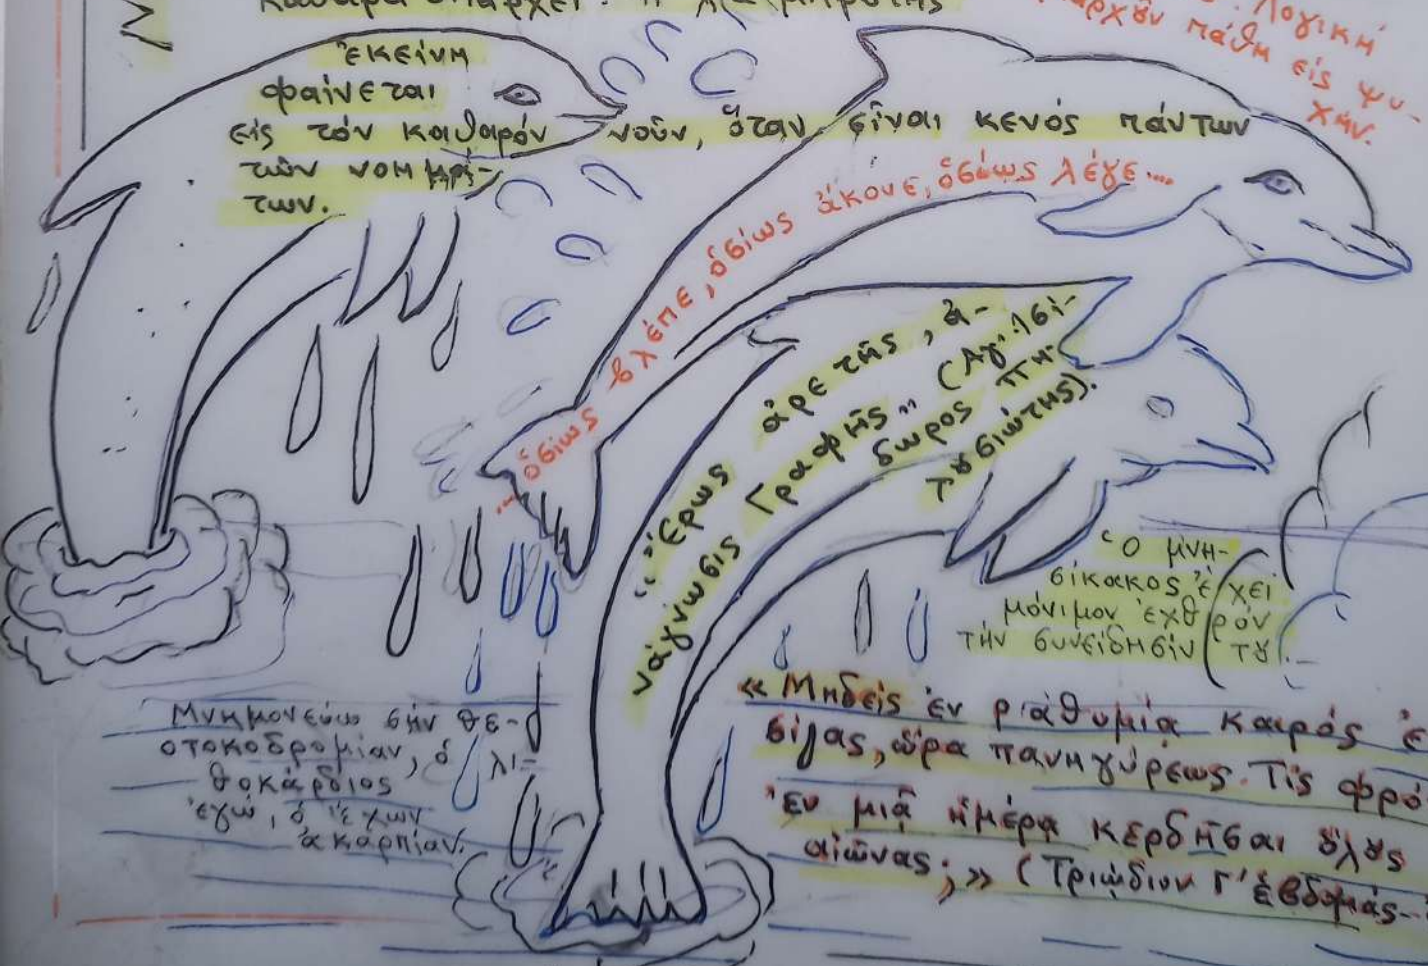 καθαρά ὑπάρχει. Ἡ
Λογική
πάθη εἰς ψυ-
χήν.
ἐκείνη
φαίνεται
εἰς τόν καθαρόν νοῦν, ὅταν εἶναι κενός πάντων
τῶν νοημά-
των.
... ὁσίως βλέπε, ὁσίως ἄκουε, ὁσίως λέγε...
«Ἔρως ἀρετῆς, ἀ-
νάγνωσις Γραφῆς» (Ἁγ. Ἰσί-
δωρος Πη-
λȣσιώτης).
Ὁ μνη-
σίκακος ἔχει
μόνιμον ἐχθρόν
τήν συνείδησίν τȣ.
Μνημονεύω σήν θε-
οτοκοδρομίαν, ὁ λι-
θοκάρδιος
ἐγώ, ὁ ἔχων
ἀκαρπίαν.
«Μηδείς ἐν ῥᾳθυμίᾳ καιρός
ὥρα πανηγύρεως. Τίς
ἐν μιᾷ ἡμέρᾳ κερδῆσαι ὅλȣς
αἰῶνας;» (Τριώδιον Γ΄ ἑβδομάς